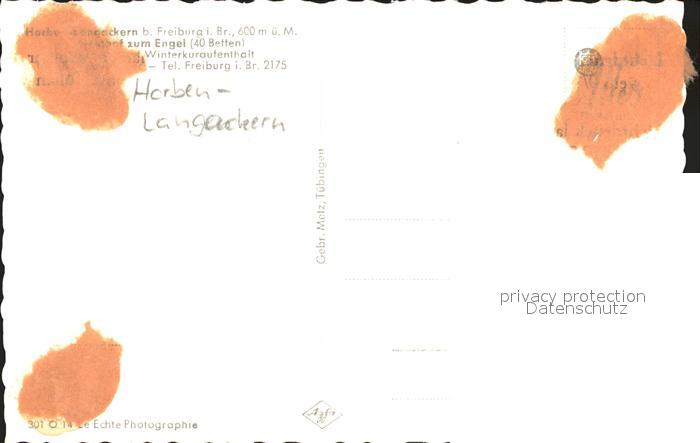 Horbe Langackern b. Freiburg i. Br., 600 m ü. M.
zum Engel (40 Betten)
Winterkuraufenthalt
– Tel. Freiburg i. Br. 2175
Horben-
Langackern
Gebr. Metz, Tübingen
privacy protection
Datenschutz
Agfa
301 O 14 Le Echte Photographie